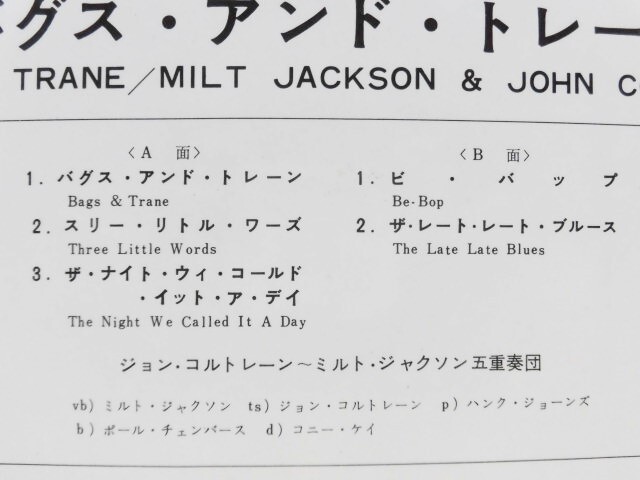 バグス・アンド・トレー
TRANE/MILT JACKSON & JOHN C
〈A 面〉
1. バグス・アンド・トレーン
Bags & Trane
2. スリー・リトル・ワーズ
Three Little Words
3. ザ・ナイト・ウィ・コールド
・イット・ア・デイ
The Night We Called It A Day
〈B 面〉
1. ビ・バップ
Be-Bop
2. ザ・レート・レート・ブルース
The Late Late Blues
ジョン・コルトレーン～ミルト・ジャクソン五重奏団
vb) ミルト・ジャクソン ts) ジョン・コルトレーン p) ハンク・ジョーンズ
b) ポール・チェンバース d) コニー・ケイ